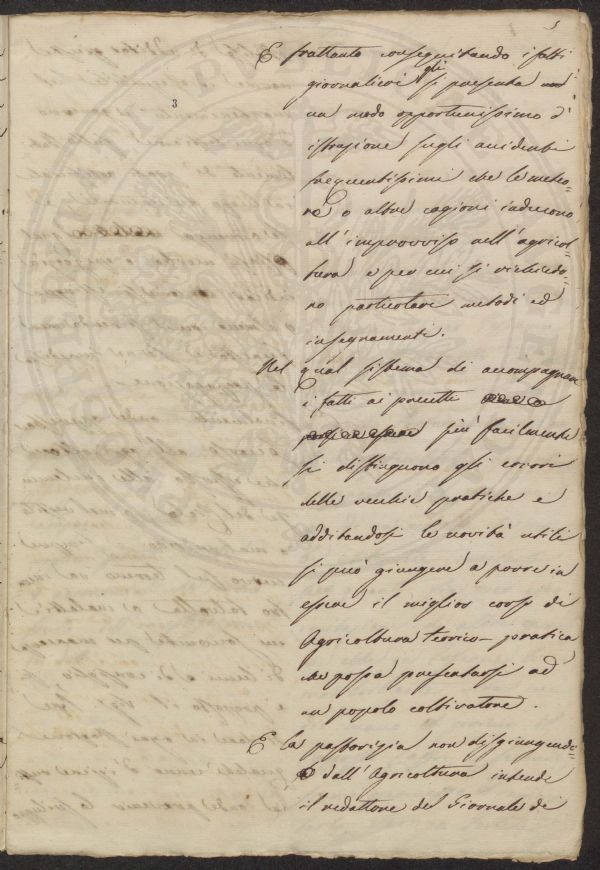 5
3
E frattanto conseguitando i fatti
giornalieri gli si presenta
un modo opportunissimo d'
istruzione sugli accidenti
frequentissimi che le meteo=
re o altre cagioni inducono
all' improvviso nell' agricol
tura e per cui si richiedo=
no particolari metodi ed
insegnamenti.
Nel qual sistema di accompagnare
i fatti ai precetti
più facilmente
si distinguono gli errori
delle vecchie pratiche e
additandosi le novità utili
si può giungere a porre in
essere il miglior corso di
Agricoltura teorico-pratica
che possa presentarsi ad
un popolo coltivatore.
E la pastorizia non disgiungendo=
dall' Agricoltura intende
il redattore del Giornale di